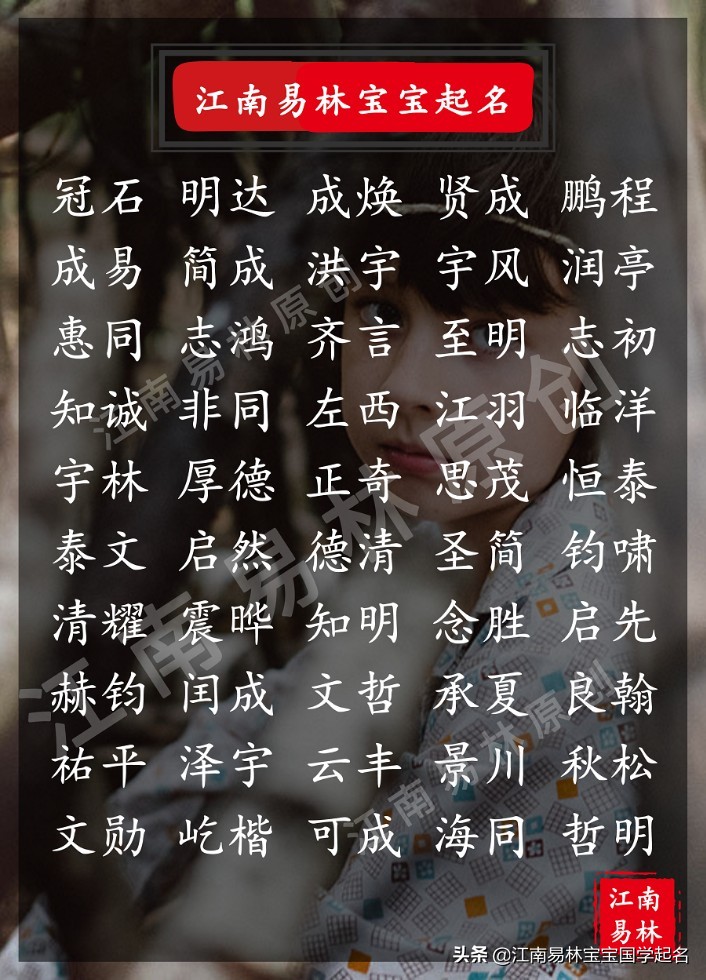 江南易林宝宝起名
冠石 明达 成焕 贤成 鹏程
成易 简成 洪宇 宇风 润亭
惠同 志鸿 齐言 至明 志初
知诚 非同 左西 江羽 临洋
宇林 厚德 正奇 思茂 恒泰
泰文 启然 德清 圣简 钧啸
清耀 震晔 知明 念胜 启先
赫钧 闰成 文哲 承夏 良翰
祐平 泽宇 云丰 景川 秋松
文勋 屹楷 可成 海同 哲明
江南易林原创
江南易林原创
江南易林原创
江南
易林
头条 @江南易林宝宝国学起名